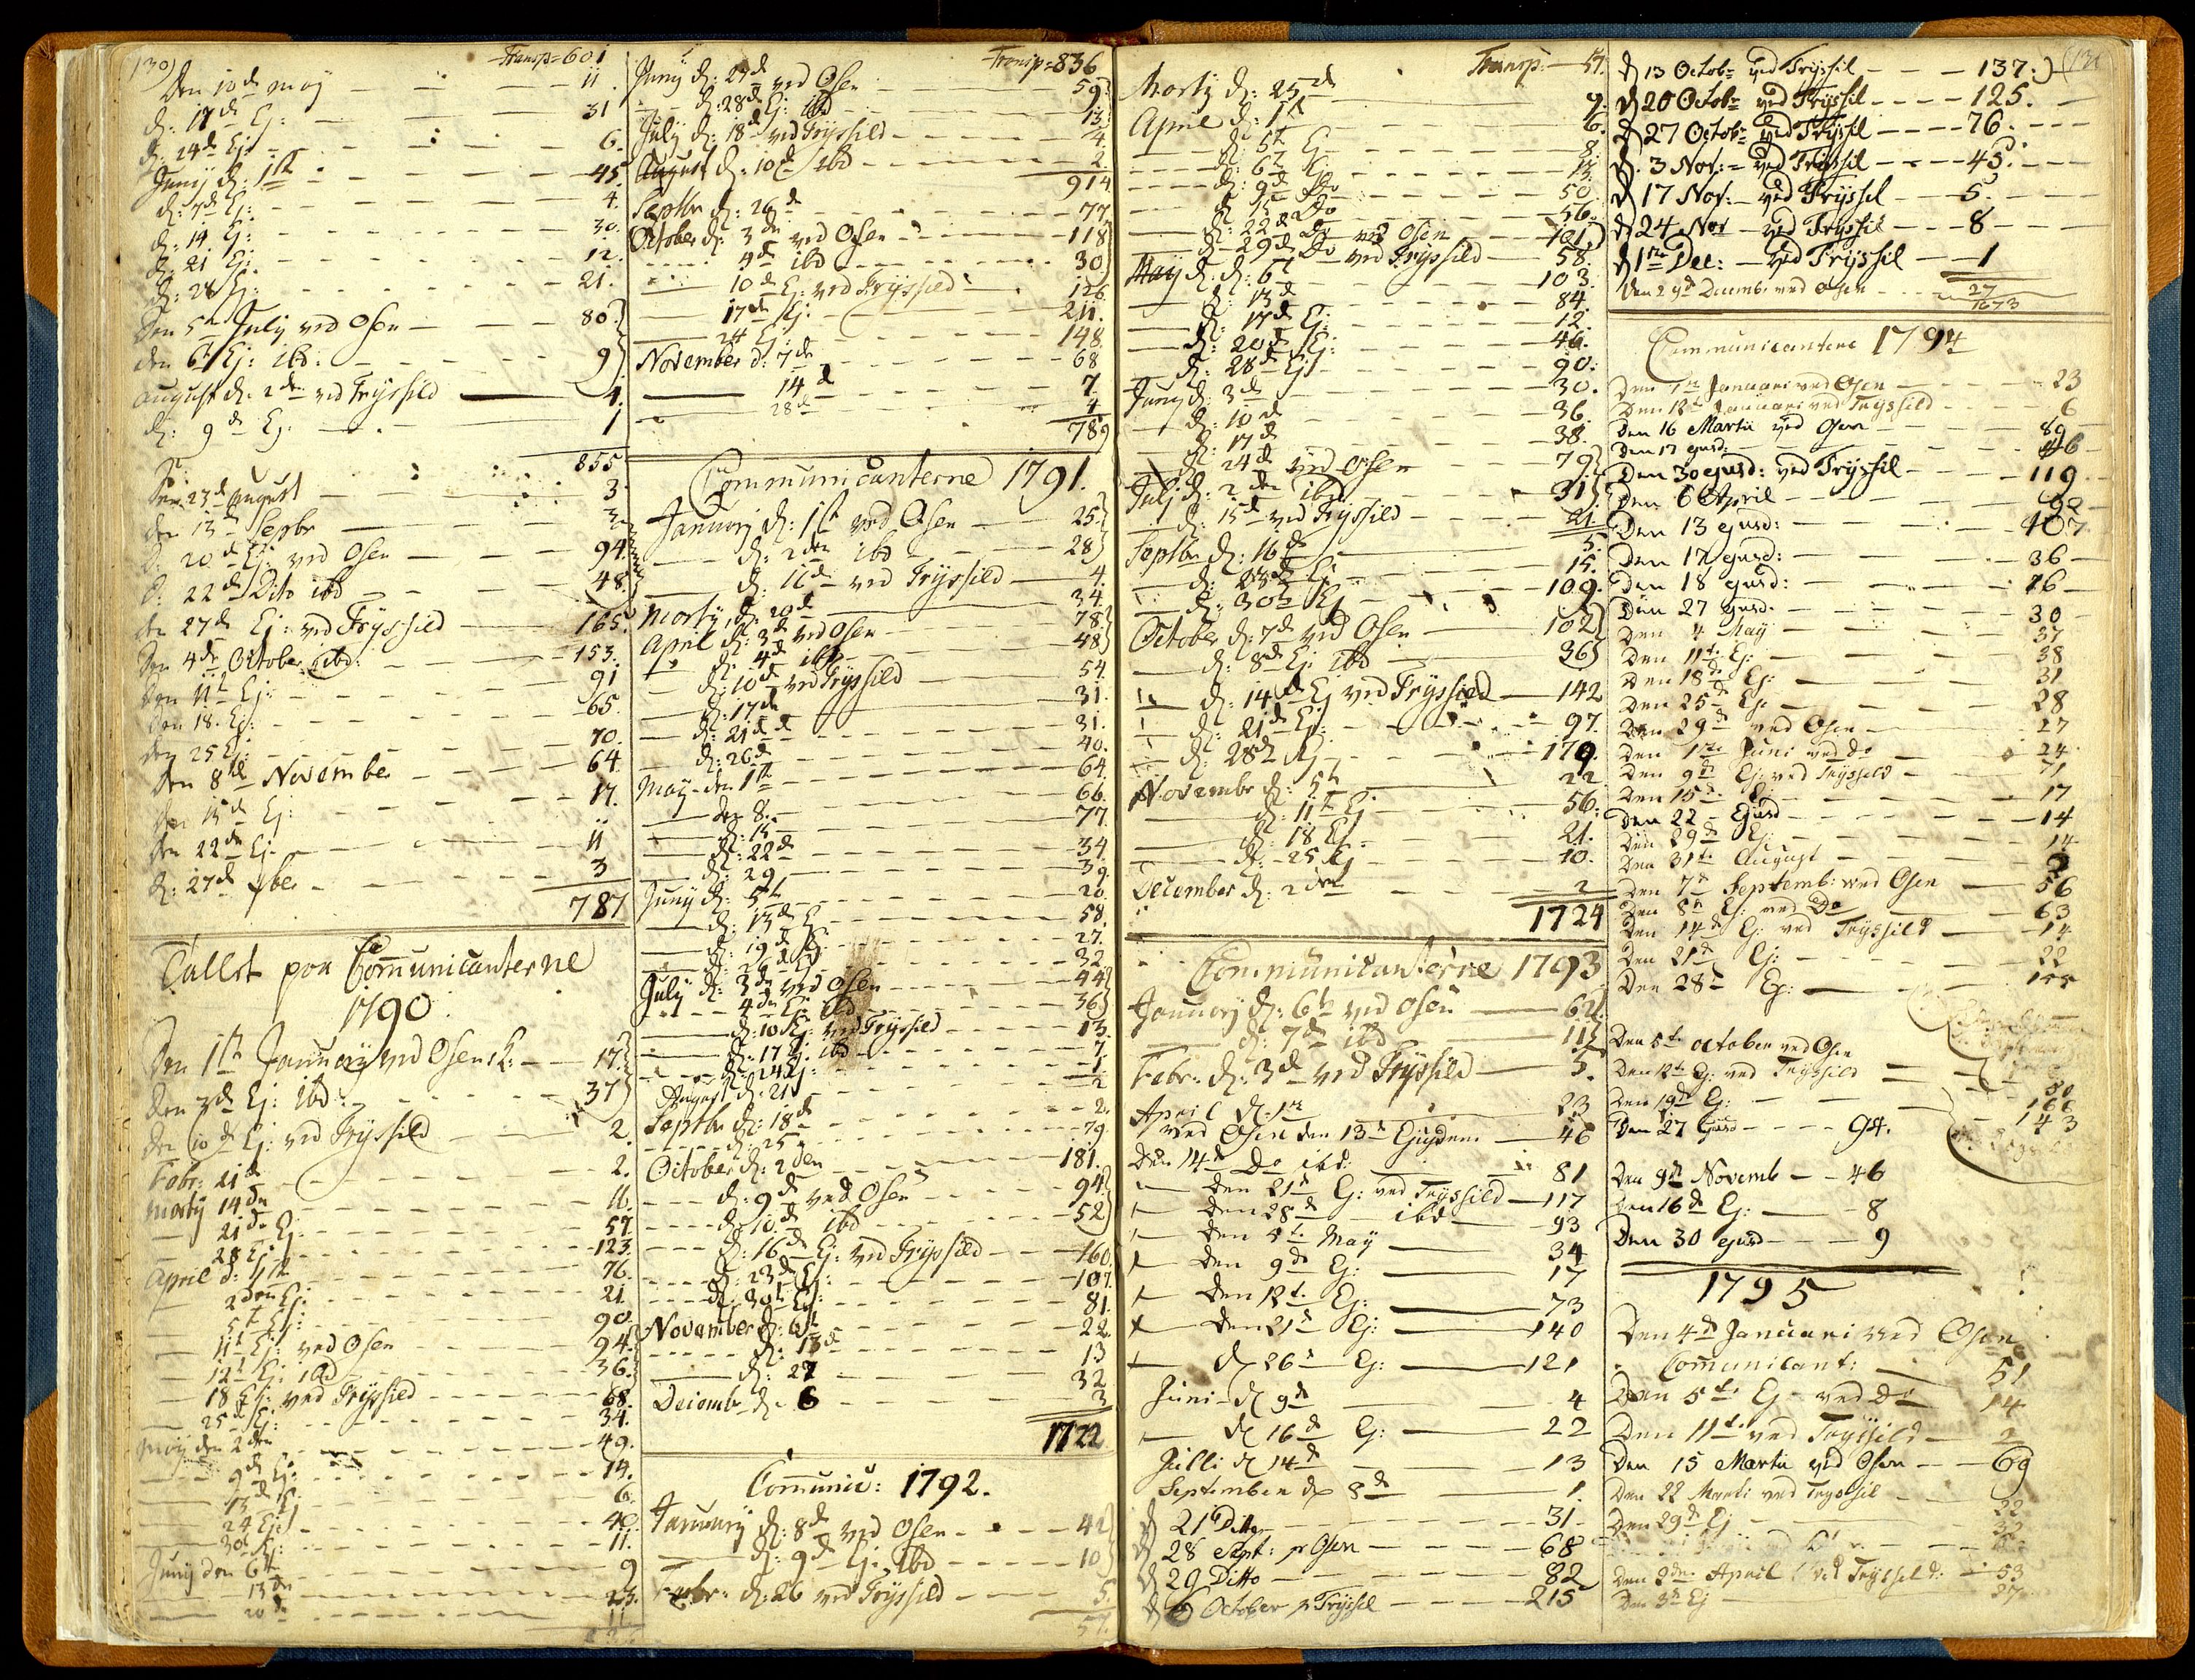 130)
Transp = 601
Den 10de may 11
d: 17de Ej: 31
d: 24de Ej: 6.
Junij d: 1ste 45.
d: 7de Ej: 4.
d: 14 Ej: 30.
d: 21 Ej: 12.
d: 28 Ej: 21.
Den 5te July ved Osen 80
den 6te Ej: ibd: 9
august d: 2den ved Tryssild 4.
d: 9de Ej. 1
855
Den 23de August 3
den 13de Sepbr 3
D: 20de Ej: ved Osen 94
d: 22de Dito ibd 48
den 27de Ej: ved Tryssild 165.
Den 4de October ibd: 153.
Den 11te Ej: 91
Den 18. Ej: 65.
den 25 Ej: 70.
Den 8de November 64
den 15de Ej: 17.
den 22de Ej. 11
d: 27de 3
787
Tallet paa Comunicanterne
1790
Den 1ste January ved Osens K: 17
den 3de Ej: ibd: 37
den 10de Ej: ved Tryssild 2.
Febr: 21de 2.
martij 14de 16.
21de Ej. 57.
28 Ej 123.
April d: 1ste 76.
2den Ej: 21.
5te Ej: 90.
11te Ej: ved Osen 94.
12te Ej: ibd 36.
18 Ej: ved Tryssild 68.
25de Ej: 34.
may den 2den 49.
9de Ej: 14.
13de Ej. 6.
24 Ej: 40.
30te Ej: 11.
Junij den 6te 9
13de 23.
20de 11
Transp = 836
Junij d: 27de ved Osen 59.
d: 28de Ej: ibd 13.
July d: 18de ved Tryssild 4.
August d: 10de ibd 2.
914
Septbr d: 26de 77.
October d: 3de ved Osen 118
4de ibd 30
10de Ej: ved Tryssild 126.
17de Ej: 211.
24 Ej: 148
November d: 7de 68
14de 7
28de 4
789
Communicanterne 1791.
Januarj d: 1ste ved Osen 25.
d: 2den ibd 28
d: 16de ved Tryssild 4.
Martij d: 20de 34.
April d: 3de ved Osen 78.
d: 4de ibd 48
d: 10de ved Tryssild 54.
d: 17de 31.
d: 21de 31.
d: 26de 40.
May den 1ste 64.
den 8. 66.
d: 15 77.
d: 22de 34
d: 29 39.
Junij d: 5te 20.
d: 13de E 58.
d: 19de E: 27.
d: 26 Ej 32
July d: 3de ved Osen 44
4de Ej: ibd 36
d: 10 Ej: ved Tryssild 13.
d: 17 Ej. ibd 7.
d: 24 Ej: 1.
August d: 21 2
Septbr d: 18de 2.
d: 25 79.
October d: 2den 181.
d: 9de ved Osen 94
d: 10de ibd 52
d: 16de Ej: ved Tryssild 160.
d: 23de Ej: 107.
d: 30te Ej: 81.
November d: 6te 22.
d: 13de 13
d: 27 32
Decembr d. 6 3
1722
Comunic: 1792.
January d: 8de ved Osen 42
d: 9de Ej: Ibd 10
Febr: d: 26 ved Tryssild 5.
57.
Transp: 57.
Martij d: 25de 9.
April d: 1ste 16.
d: 5te Ej 8.
d: 6te Ej 13.
d: 9de Do 50
d: 15 Do 56.
d: 22de Do ved Osen 101
d: 29de Do ved Tryssild 58.
May d: d: 6te 103.
d: 13de 84.
d: 17de Ej: 12.
d: 20de Ej: 46.
d: 28de Ej: 90:
Junij d: 3de 30.
d: 10de 36
d: 17de 38.
d: 24de ved Osen 79
Julj d: 2den ibd 31
d: 15de ved Tryssild 21
Septbr d: 16de 5.
d: 23de Ej 15.
d: 30te Ej 109.
October d: 7de ved Osen 102
d: 8de Ej ibd 36
d: 14de Ej ved Tryssild 142
d: 21de Ej: 97.
d: 28de Ej 179.
Novembr d: 5te 22
d: 11te Ej 56.
d: 18 Ej. 21.
d: 25 Ej 10.
December d: 2den 2
1724
Communicanterne 1793
January d: 6te ved Osen 62
d: 7de ibd 11
Febr: d: 3de ved Tryssild 5.
April d. 1ste 23
ved Osen den 13de Ejusdem 46
Den 14de Do ibd: 81
den 21de Ej: ved Tryssild 117
Den 28de ibd 93
Den 5te May 34
Den 9de Ej: 17
Den 12te Ej: 73
Den 21de Ej: 140
d 26de Ej: 121
Juni d 9de 4
d 16de Ej: 22
Julli d 14de 13
September d 8de 1.
d 21 Ditto 31
d 28 Sept: pr Osen 68
d 29 Ditto 82
d 6 October pr Tryssel 215
131
d 13 Octobr ved Tryssil 137.
d 20 Octobr ved Tryssil 125.
d 27 Octobr ved Tryssil 76.
d. 3 Nov: ved Tryssil 45.
d 17 Nov: ved Tryssel 5
d 24 Nov ved Tryssil 8
d 1ste Dec: ved Tryssil 1
Den 29de Decemb: ved Osen 27
1673
Communicantere 1794
Den 1ste Januari ved Osen 23
Den 12te Januari ved Tryssild 6
Den 16 Martii ved Osen 89
Den 17 ejusd: 46
Den 30 ejusd: ved Tryssil 119
Den 6 April 92
Den 13 ejusd: 107
Den 17 ejusd: 36
Den 18 ejusd: 76
Den 27 ejusd. 30
Den 4 May 37
Den 11te Ej: 38
Den 18de Ej: 31
Den 25de Ej: 28
Den 29de ved Osen 27
Den 1ste Juni ved do 24
Den 9de Ej: ved Tryssild 71
Den 15de Ej: 17
Den 22 Ejusd 14
Den 29de Ej: 14
Den 31te August
Den 7de Septemb: ved Osen 56
Den 8de Ej: ved Do 63
Den 14de Ej: ved Tryssild 14
Den 21de Ej: 22
Den 28de Ej:
Den 5te October ved Osen
Den 12te Ej: ved Tryssild 80
Den 19de Ej: 168
Den 27 Ejusd 94. 143
Den 9de Novemb 46
Den 16de Ej: 8
Den 30 ejusd 9
1795
Den 4de Januari ved Osen
Comunicant: 51
Den 5te Ej ved Do 14
Den 11te ved Tryssild 2
Den 15 Martii ved Osen 69
Den 22 Marti ved Tryssil 22
Den 29de Ej 32
Den 2den April ved Tryssild: 53
Den 3de Ej 27